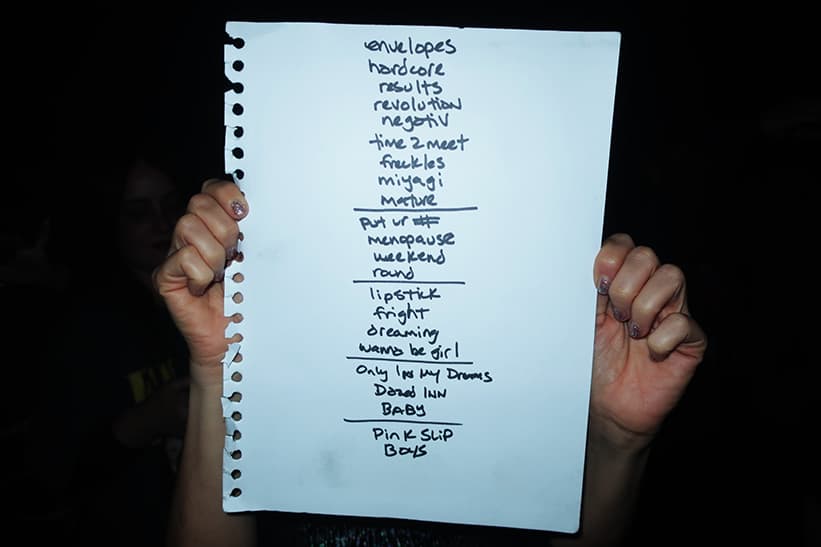 envelopes
hardcore
results
revolution
negativ
time 2 meet
freckles
miyagi
mature
put ur #
menopause
weekend
round
lipstick
fright
dreaming
wanna be girl
Only In My Dreams
Dazed INN
BABY
PINK SLIP
BOYS